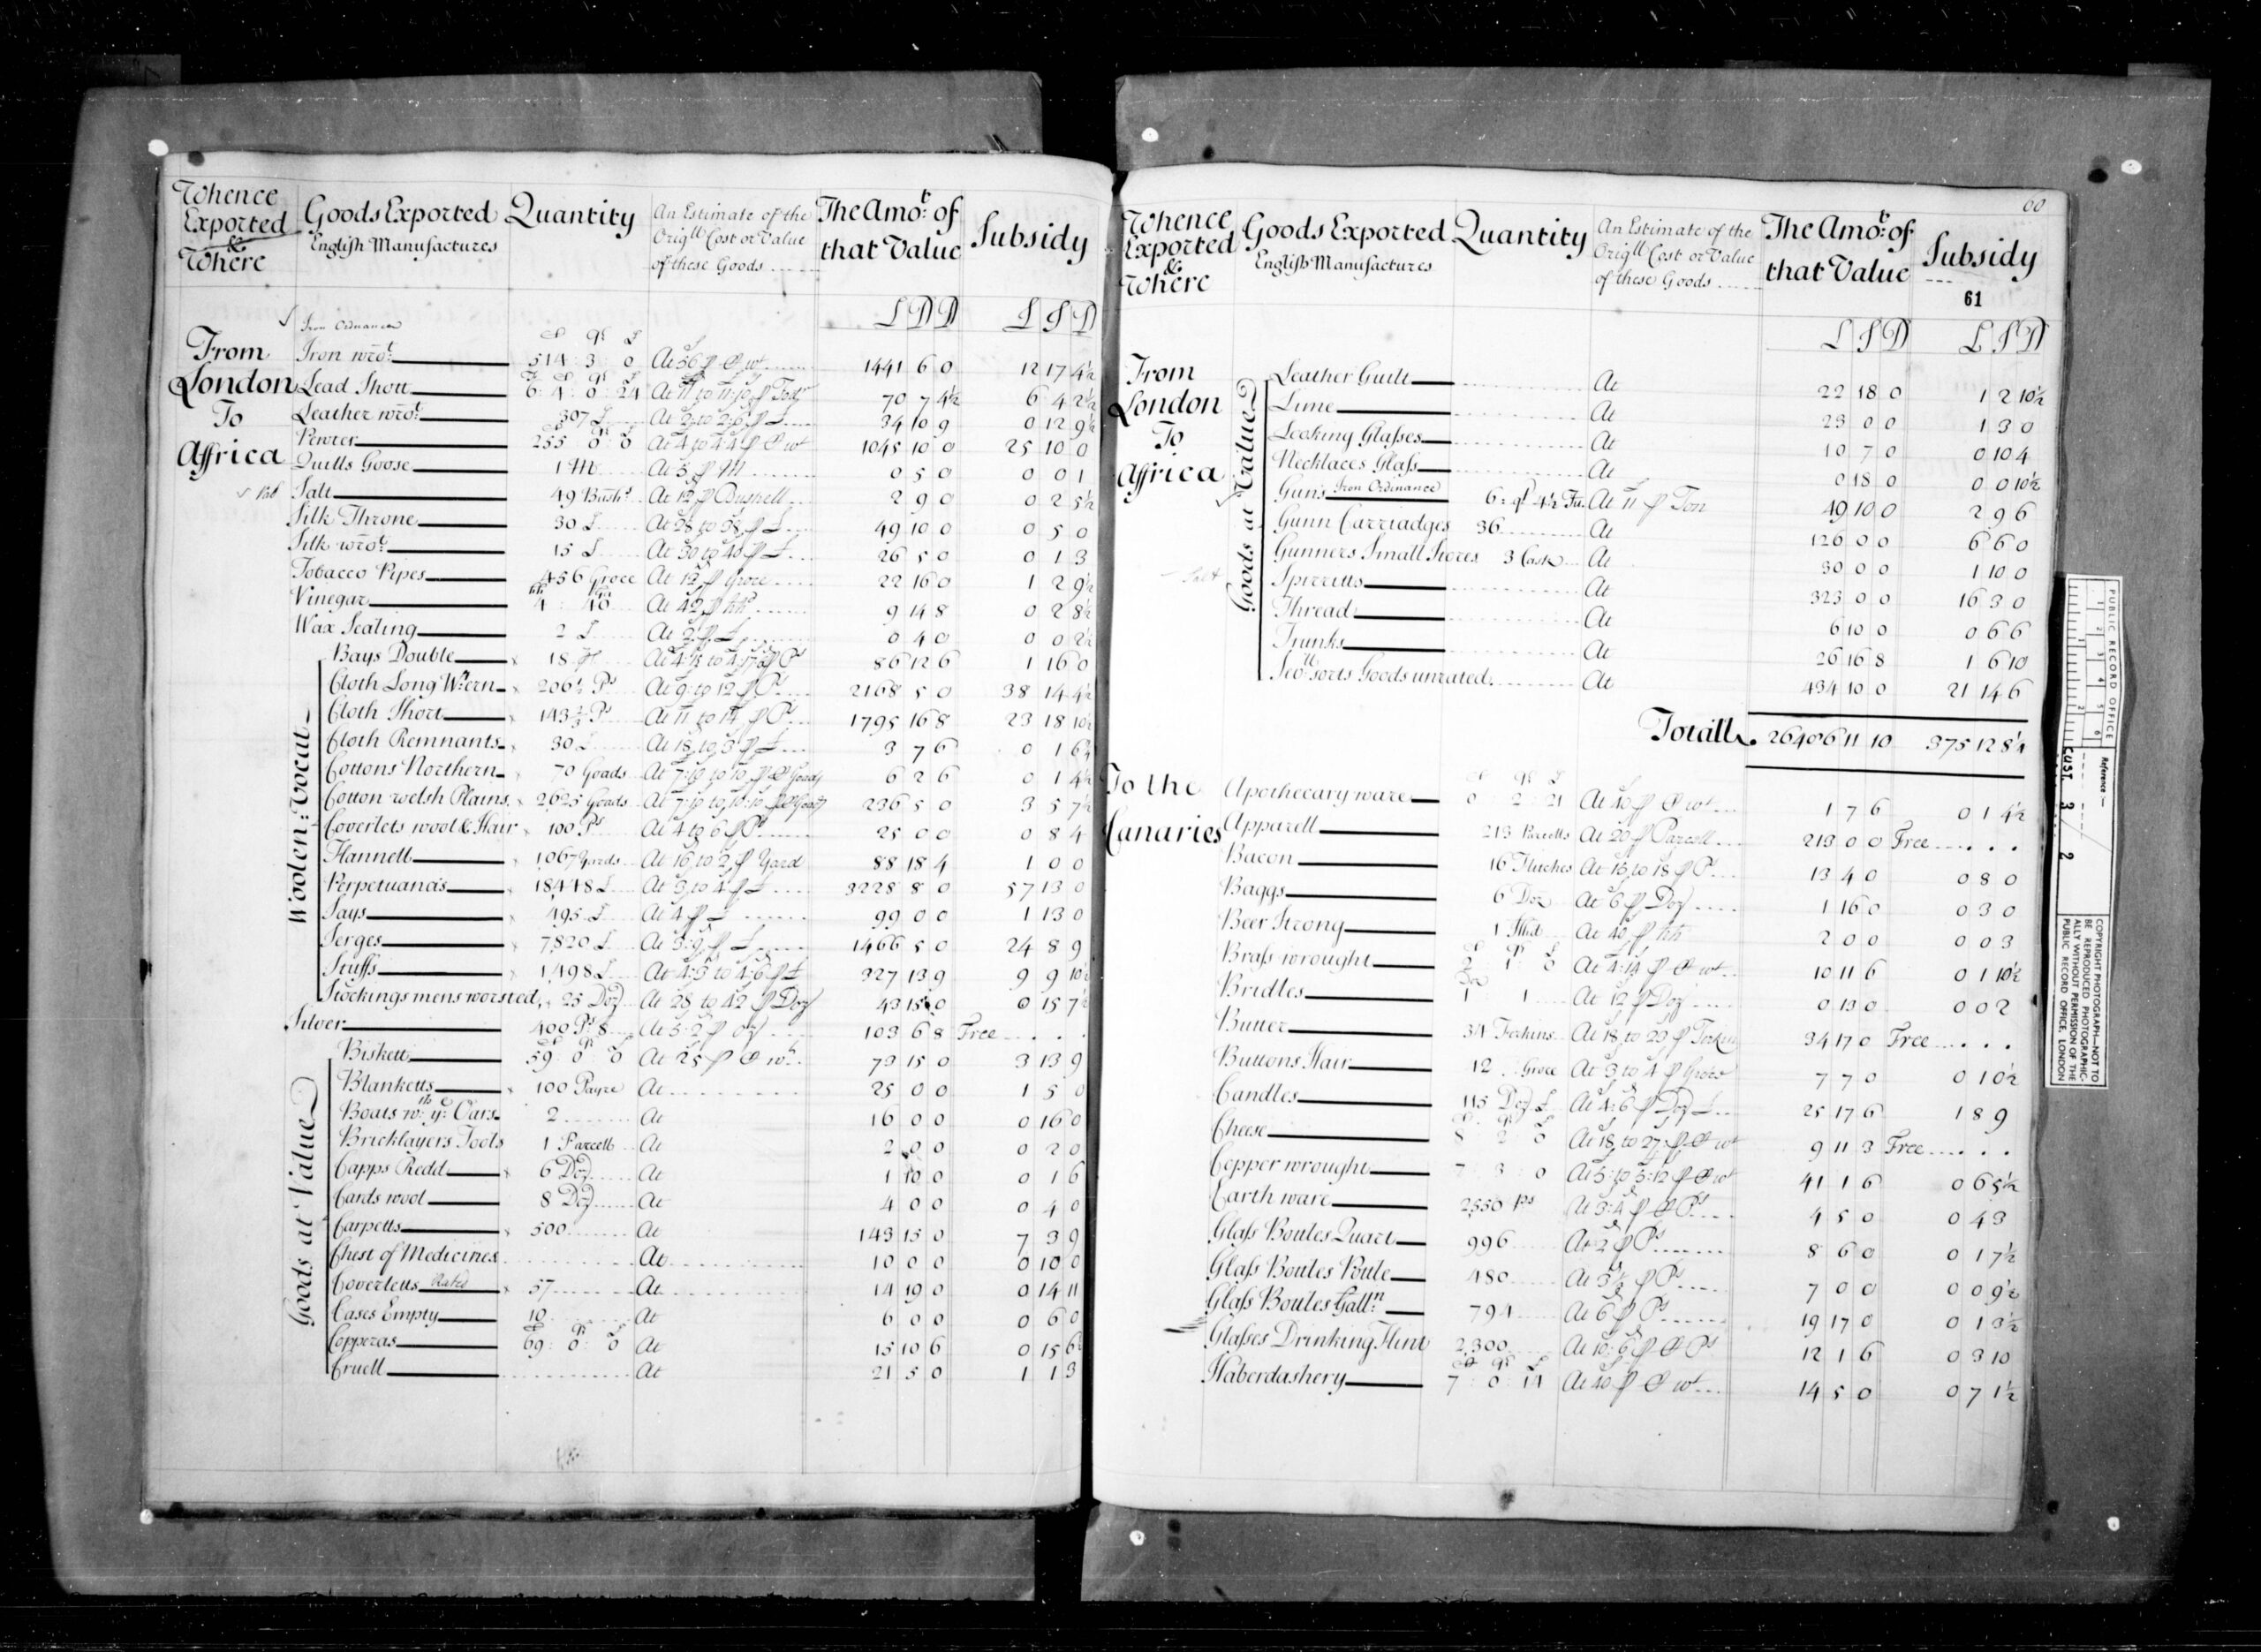 Whence Exported & Where | Goods Exported English Manufactures | Quantity | An Estimate of the Orig.ll Cost or Value of these Goods | The Amo.t of that Value | Subsidy
L D D | L S D
From London To Affrica
Iron Ordnance
Iron wro.t 514 : 3 : 0 At 56 p C wt 1441 6 0 12 17 4½
Lead Shott 6 : 4 : 0 : 24 At 11 to 11:10 p Ton 70 7 4½ 6 4 2½
Leather wro.t 307 L At 2 to 2:6 p L 34 10 9 0 12 9½
Pewter 255 : 0 : 0 At 4 to 4:4 p C wt 1045 10 0 25 10 0
Quills Goose 1 M At 5 p M 0 5 0 0 0 1
Salt 49 Bush.s At 12 p Bushell 2 9 0 0 2 5½
Silk Throne 30 L At 28 to 38 p L 49 10 0 0 5 0
Silk wro.t 15 L At 30 to 40 p L 26 5 0 0 1 3
Tobacco Pipes 456 Groce At 12 p Groce 22 16 0 1 2 9½
Vinegar 4 : 40 At 42 p hh 9 14 8 0 2 8½
Wax Sealing 2 L At 2 p L 0 4 0 0 0 2½
Woolen : Vocat
Bays Double 18 At 4:15 to 4:17:6 p P.s 86 12 6 1 16 0
Cloth Long W.rn 206½ P.s At 9 to 12 p P.s 2168 5 0 38 14 4½
Cloth Short 143⅔ P.s At 11 to 14 p P.s 1795 16 8 23 18 10½
Cloth Remnants 30 L At 18 to 3 p L 3 7 6 0 1 6¼
Cottons Northern 70 Goads At 7:10 to 10 p C Goads 6 2 6 0 1 4½
Cotton welsh Plains 2625 Goads At 7:10 to 10:10 p C Goads 236 5 0 3 5 7½
Coverlets wool & Hair 100 P.s At 4 to 6 p P.s 25 0 0 0 8 4
Flannell 1067 Yards At 16 to 2 p Yard 88 18 4 1 0 0
Perpetuana's 18448 L At 3 to 4 p L 3228 8 0 57 13 0
Says 495 L At 4 p L 99 0 0 1 13 0
Serges 7820 L At 3:9 p L 1466 5 0 24 8 9
Stuffs 1498 L At 4:3 to 4:6 p L 327 13 9 9 9 10½
Stockings mens worsted 25 Doz At 28 to 42 p Doz 43 15 0 0 15 7½
Silver 400 P.s 8 At 5:2 p oz 103 6 8 Free
Goods at Value
Biskett 59 : 0 : 0 At 25 p C wt 73 15 0 3 13 9
Blanketts 100 Payre At 25 0 0 1 5 0
Boats w.th y.e Oars 2 At 16 0 0 0 16 0
Bricklayers Tools 1 Parcell At 2 0 0 0 2 0
Capps Redd 6 Doz At 1 10 0 0 1 6
Cards wool 8 Doz At 4 0 0 0 4 0
Carpetts 500 At 143 15 0 7 3 9
Chest of Medicines At 10 0 0 0 10 0
Coverletts Rated 57 At 14 19 0 0 14 11
Cases Empty 10 At 6 0 0 0 6 0
Copperas 69 : 0 : 0 At 15 10 6 0 15 6½
Cruell At 21 5 0 1 1 3
60
Whence Exported & Where | Goods Exported English Manufactures | Quantity | An Estimate of the Orig.ll Cost or Value of these Goods | The Amo.t of that Value | Subsidy
61
L S D | L S D
From London To Affrica
Goods at Value
Leather Guilt At 22 18 0 1 2 10½
Lime At 23 0 0 1 3 0
Looking Glasses At 10 7 0 0 10 4
Necklaces Glass At 0 18 0 0 0 10½
Guns Iron Ordinance 6 : At 11 p Ton 49 10 0 2 9 6
Gunn Carriadges 36 At 126 0 0 6 6 0
Gunners Small Stores 3 Cask At 30 0 0 1 10 0
Spirritts At 323 0 0 16 3 0
Thread At 6 10 0 0 6 6
Trunks At 26 16 8 1 6 10
Sev.ll Sorts Goods unrated At 434 10 0 21 14 6
Totall 26406 11 10 375 12 8¼
To the Canaries
Apothecary ware 0 2 21 At 40 p C wt 1 7 6 0 1 4½
Apparell 213 Parcells At 20 p Parcell 213 0 0 Free
Bacon 16 Flitches At 15 to 18 p P.s 13 4 0 0 8 0
Baggs 6 Doz At 6 p Doz 1 16 0 0 3 0
Beer Strong 1 Hhd At 40 p hh 2 0 0 0 0 3
Brass wrought 2 1 0 At 4:14 p C wt 10 11 6 0 1 10½
Bridles 1 1 At 12 p Doz 0 13 0 0 0 2
Butter 34 Ferkins At 18 to 23 p Ferkin 34 17 0 Free
Buttons Hair 12 Groce At 3 to 4 p Groce 7 7 0 0 1 0½
Candles 115 Doz L At 4:6 p Doz L 25 17 6 1 8 9
Cheese 8 2 0 At 18 to 27 p C wt 9 11 3 Free
Copper wrought 7 3 0 At 5:5 to 5:12 p C wt 41 1 6 0 6 5½
Earth ware 2550 p.s At 3:4 p C P.s 4 5 0 0 4 3
Glass Bottles Quart 996 At 2 p P.s 8 6 0 0 1 7½
Glass Bottles Pottle 480 At 3½ p P.s 7 0 0 0 0 9½
Glass Bottles Gall.n 794 At 6 p P.s 19 17 0 0 1 3½
Glasses Drinking Flint 2300 At 10:6 p C P.s 12 1 6 0 3 10
Haberdashery 7 0 14 At 40 p C wt 14 5 0 0 7 1½
PUBLIC RECORD OFFICE
Reference :-
CUST. 3 / 2
COPYRIGHT PHOTOGRAPH—NOT TO BE REPRODUCED PHOTOGRAPHICALLY WITHOUT PERMISSION OF THE PUBLIC RECORD OFFICE, LONDON